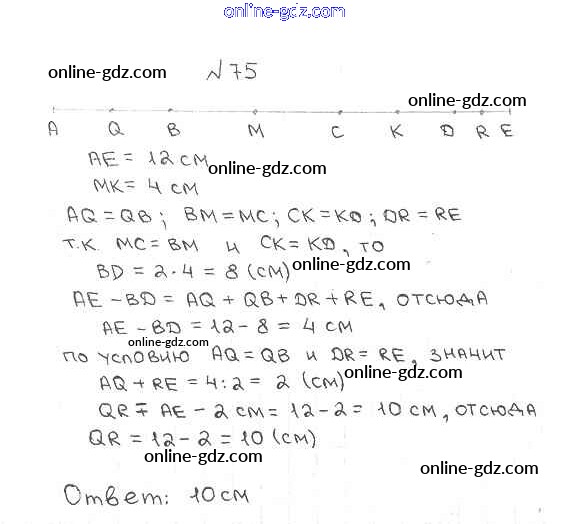 online-gdz.com
online-gdz.com №75
online-gdz.com
A Q B M C K D R E
AE = 12 см
online-gdz.com
MK = 4 см
AQ = QB; BM = MC; CK = KD; DR = RE
т.к. MC = BM и CK = KD, то
BD = 2·4 = 8 (см) online-gdz.com
AE - BD = AQ + QB + DR + RE, отсюда
AE - BD = 12 - 8 = 4 см
online-gdz.com
по условию AQ = QB и DR = RE, значит
AQ + RE = 4:2 = 2 (см) online-gdz.com
QR = AE - 2 см = 12 - 2 = 10 см, отсюда
QR = 12 - 2 = 10 (см)
online-gdz.com
online-gdz.com
Ответ: 10 см